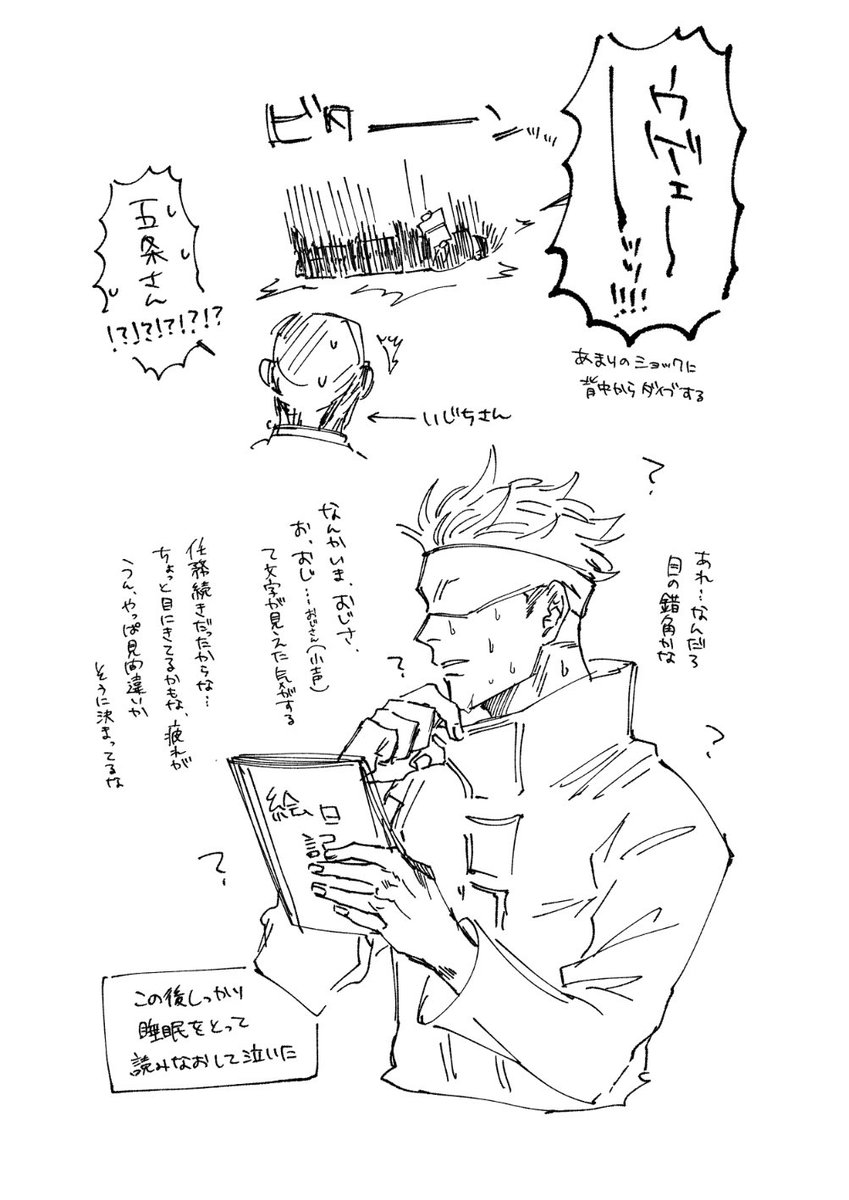 ウヴェー
ーーッッ!!!!
ビターーーン
五条さん
!?!?!?!?!?
あまりのショックに
背中からダイブする
いじちさん
?
あれ…なんだろ
目の錯角かな
なんかいま、おじさ、
お、おじ…おじさん(小声)
て文字が見えた気がする
任務続きだったからな…
ちょっと目にきてるかもな、疲れが
うん、やっぱ見間違いか
そうに決まってるな
?
?
絵日記
?
この後しっかり
睡眠をとって
読みなおして泣いた